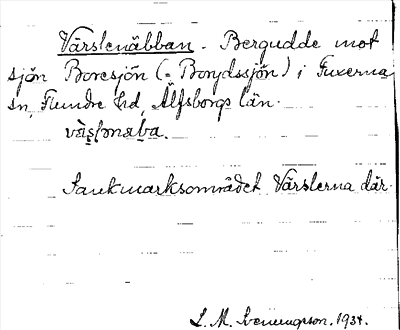 Värslenäbban. Bergudde mot
sjön Boresjön (= Borydssjön) i Fuxerna
sn, Flundre hd, Älfsborgs län.
Sankmarksområdet Värslerna där.
1934.